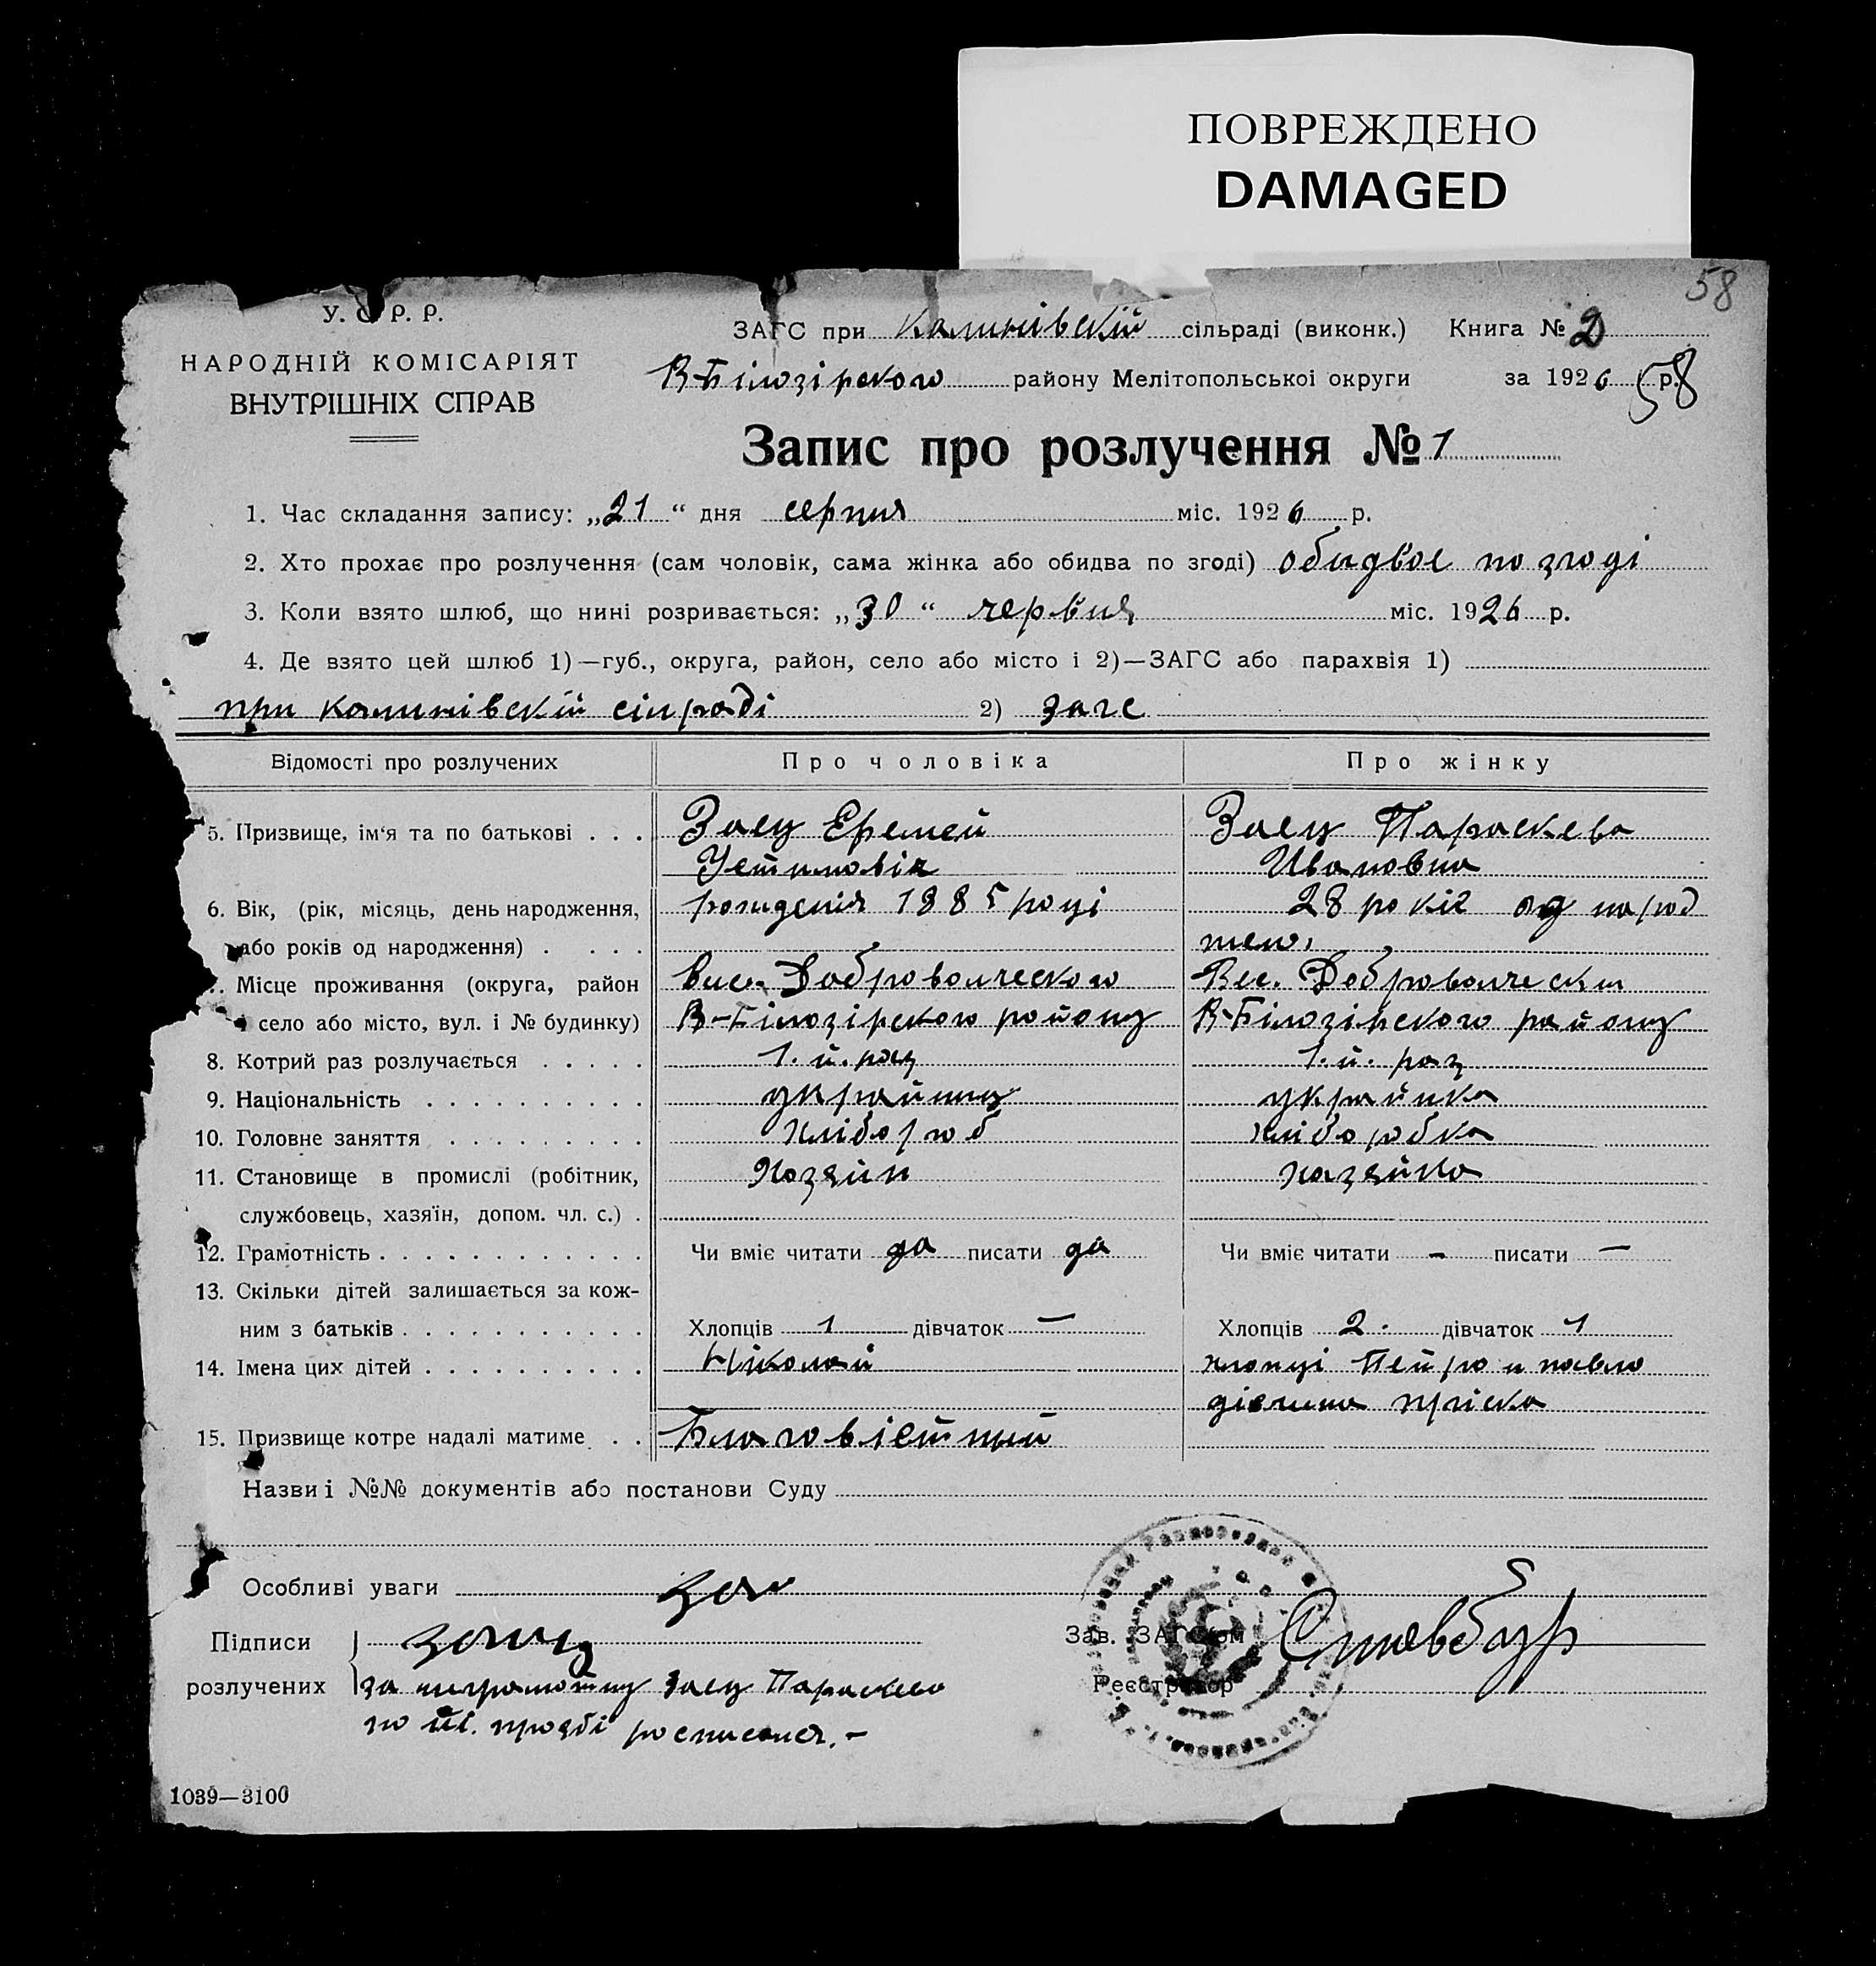 ПОВРЕЖДЕНО
DAMAGED
58
У. С. Р. Р.
НАРОДНІЙ КОМІСАРІЯТ
ВНУТРІШНІХ СПРАВ
ЗАГС при Калинівскій сільраді (виконк.) Книга № 2
В-Білозірского району Мелітопольськоі округи за 1926 р. 58
Запис про розлучення № 1
1. Час складання запису: „21“ дня серпня міс. 1926 р.
2. Хто прохає про розлучення (сам чоловік, сама жінка або обидва по згоді) обидвое по згоді
3. Коли взято шлюб, що нині розривається: „30“ червня міс. 1926 р.
4. Де взято цей шлюб 1)—губ., округа, район, село або місто і 2)—ЗАГС або парахвія 1)
при калинівскій сілраді 2) загс
Відомості про розлучених Про чоловіка Про жінку
5. Призвище, ім‘я та по батькові . . . Заец Еремей Заец Параскева
Устиновіч Ивановна
6. Вік, (рік, місяць, день народження, рождения 1885 році 28 років од народ
або років од народження) . . . .
Місце проживання (округа, район Вис. Добровольческого Вес. Добровольчески
село або місто, вул. і № будинку) В-Білозірского району В-Білозірского району
8. Котрий раз розлучається . . . . . 1.й. раз 1.й. раз
9. Національність . . . . . . . . . . українец українка
10. Головне заняття . . . . . . . . . хлібороб хлібо робка
11. Становище в промислі (робітник, Хозяйн хазяйка
службовець, хазяїн, допом. чл. с.) .
12. Грамотність . . . . . . . . . . . . Чи вміє читати да писати да Чи вміє читати - писати —
13. Скільки дітей залишається за кож-
ним з батьків . . . . . . . . . . . Хлопців 1 дівчаток — Хлопців 2. дівчаток 1
14. Імена цих дітей . . . . . . . . . . Ніколай хлопці Пейро и павло
дівчина пріска
15. Призвище котре надалі матиме . . Благовістний
Назви і №№ документів або постанови Суду
Особливі уваги
Підписи
розлучених за награмотну Заец Параскева
по прозбі росписался. —
Зав. ЗАГС'ом Ставбур
Реєстратор
1039—3100